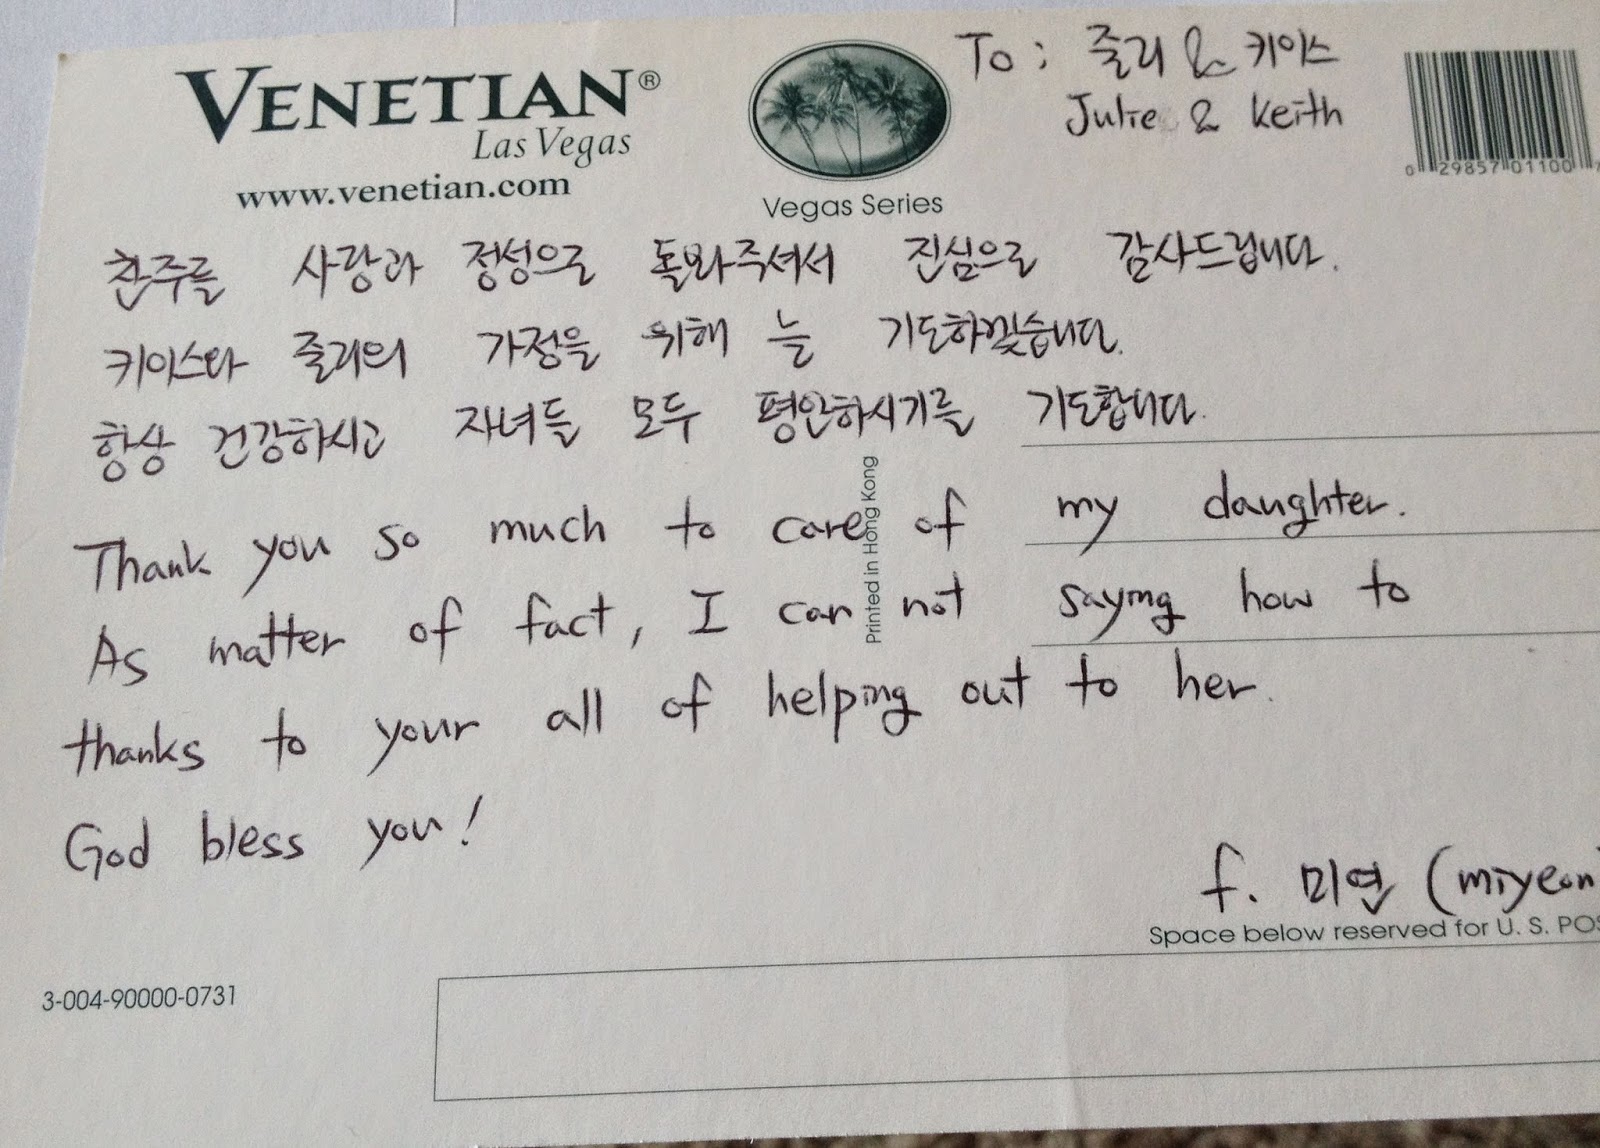 VENETIAN®
Las Vegas
www.venetian.com
Vegas Series
To : 줄리 & 키이스
Julie & Keith
0 29857 01100 7
찬주를 사랑과 정성으로 돌봐주셔서 진심으로 감사드립니다.
키이스와 줄리의 가정을 위해 늘 기도하겠습니다.
항상 건강하시고 자녀들 모두 평안하시기를 기도합니다.
Thank you so much to care of my daughter.
As matter of fact, I can not saying how to
thanks to your all of helping out to her.
God bless you!
f. 미연 (miyeon
Printed in Hong Kong
Space below reserved for U. S. POS
3-004-90000-0731